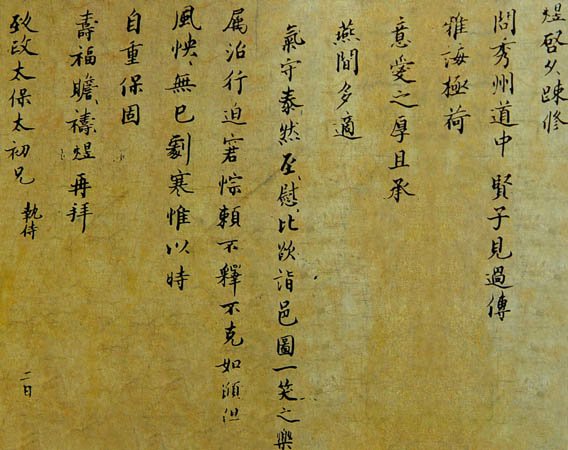 煜啓久疎修
問秀州道中賢子見過傳
雅誨極荷
意愛之厚且承
燕閒多適
氣守泰然至慰比欲詣邑圖一笑之樂
属治行迫窘悰賴不釋不克如願但
風怏無已劇寒惟以時
自重保固
壽福瞻禱煜再拜
致政太保太初兄 執侍
二日